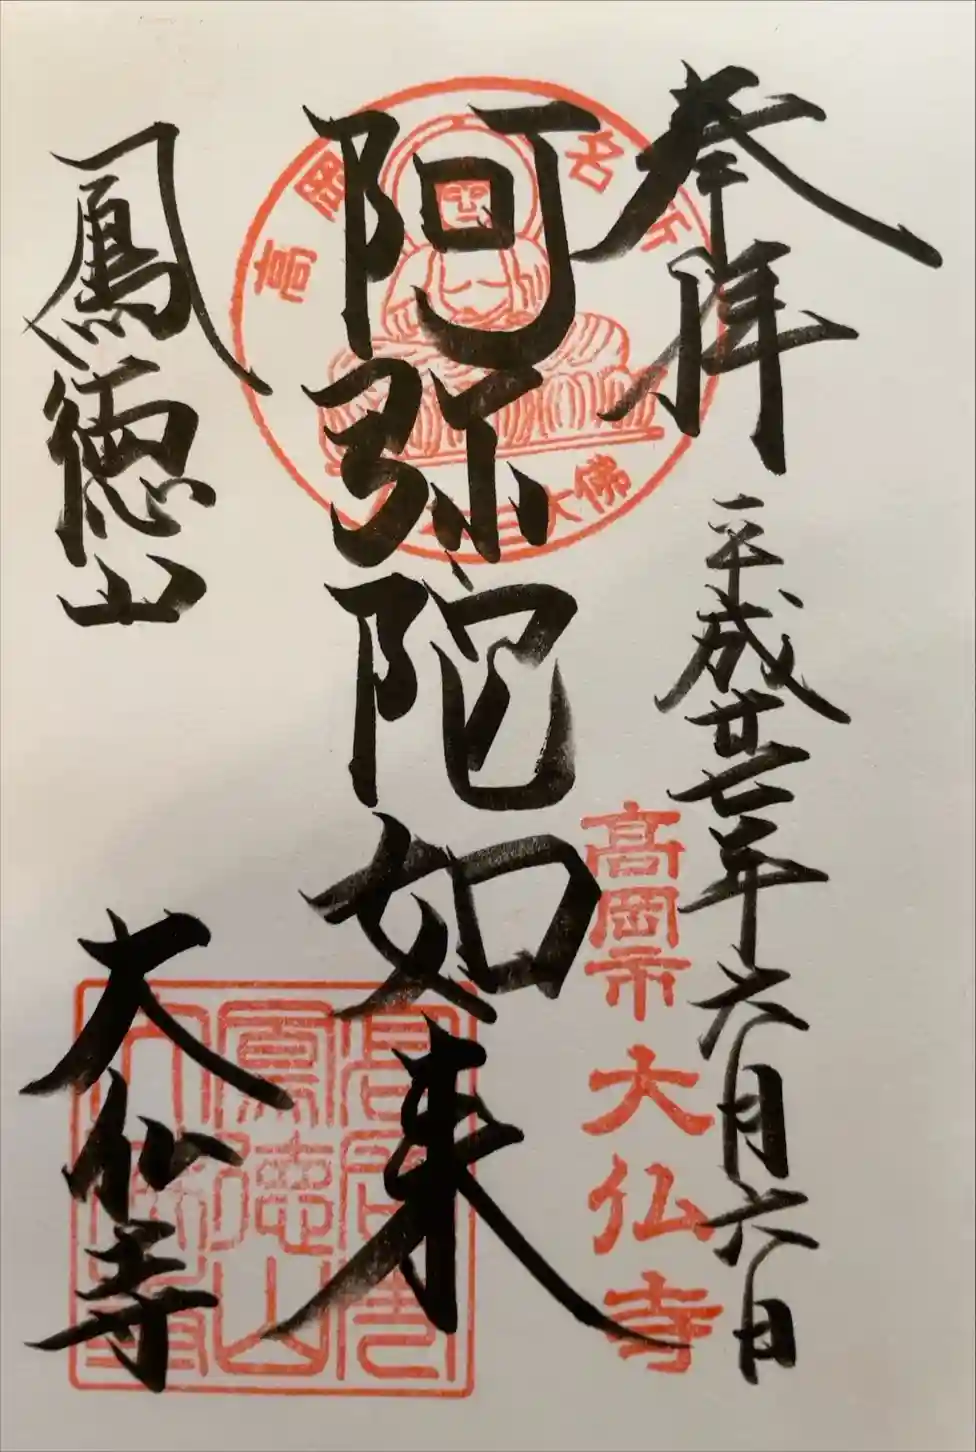 奉拝
平成廿七年六月六日
高岡市大仏寺
阿弥陀如来
高岡名所
大佛
鳳徳山
大仏寺
鳳徳山